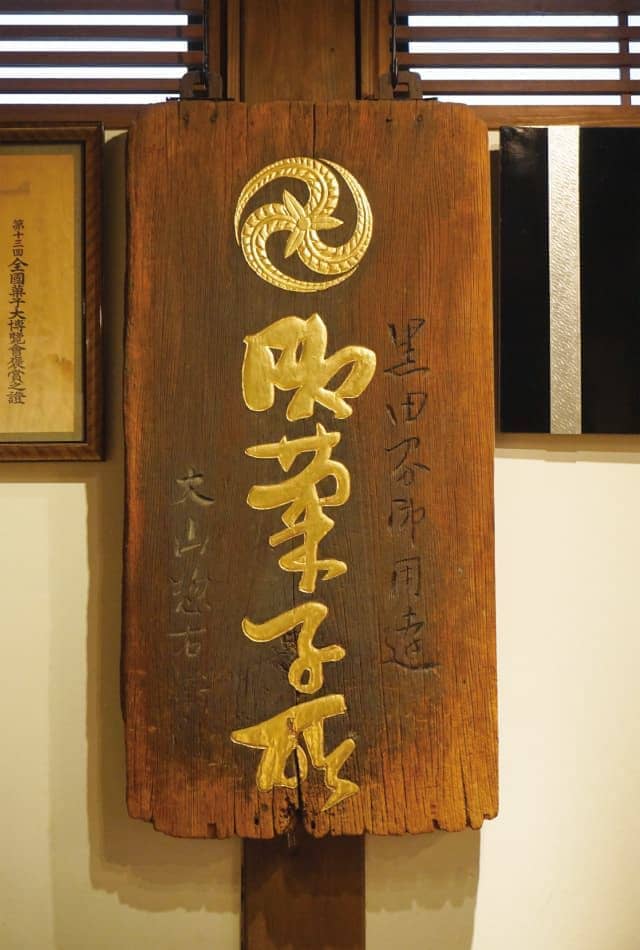 黒田家御用達
御菓子所
大山惣右
第十三回全國菓子大博覽會褒賞之證